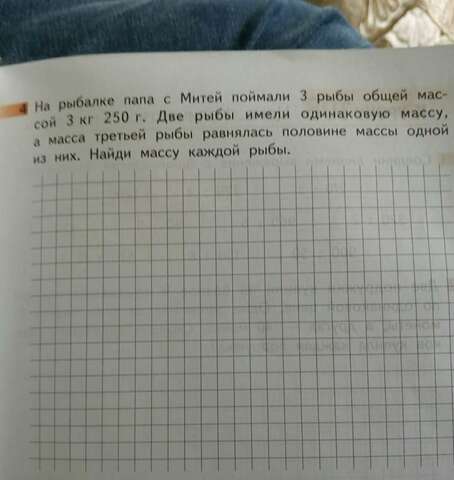 4 На рыбалке папа с Митей поймали 3 рыбы общей мас-
сой 3 кг 250 г. Две рыбы имели одинаковую массу,
а масса третьей рыбы равнялась половине массы одной
из них. Найди массу каждой рыбы.